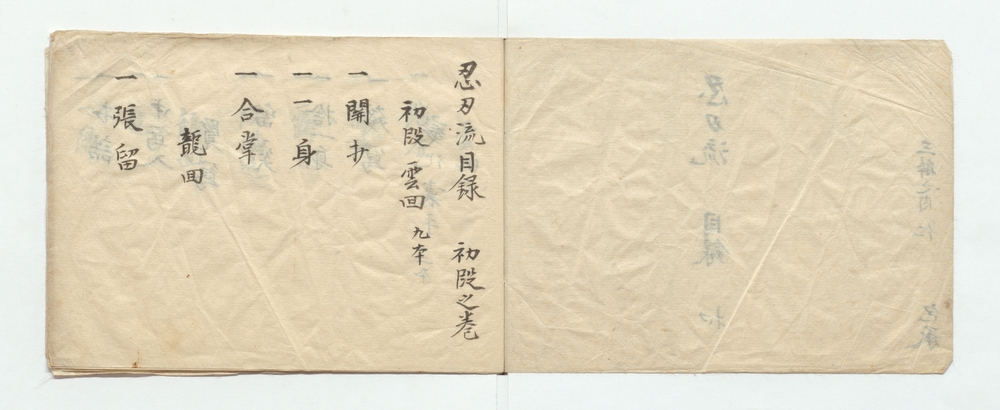 忍刃流目録 初段之巻
初段 雲回 九本
一 開抄
一 一身
一 合掌
龍回
一 張留